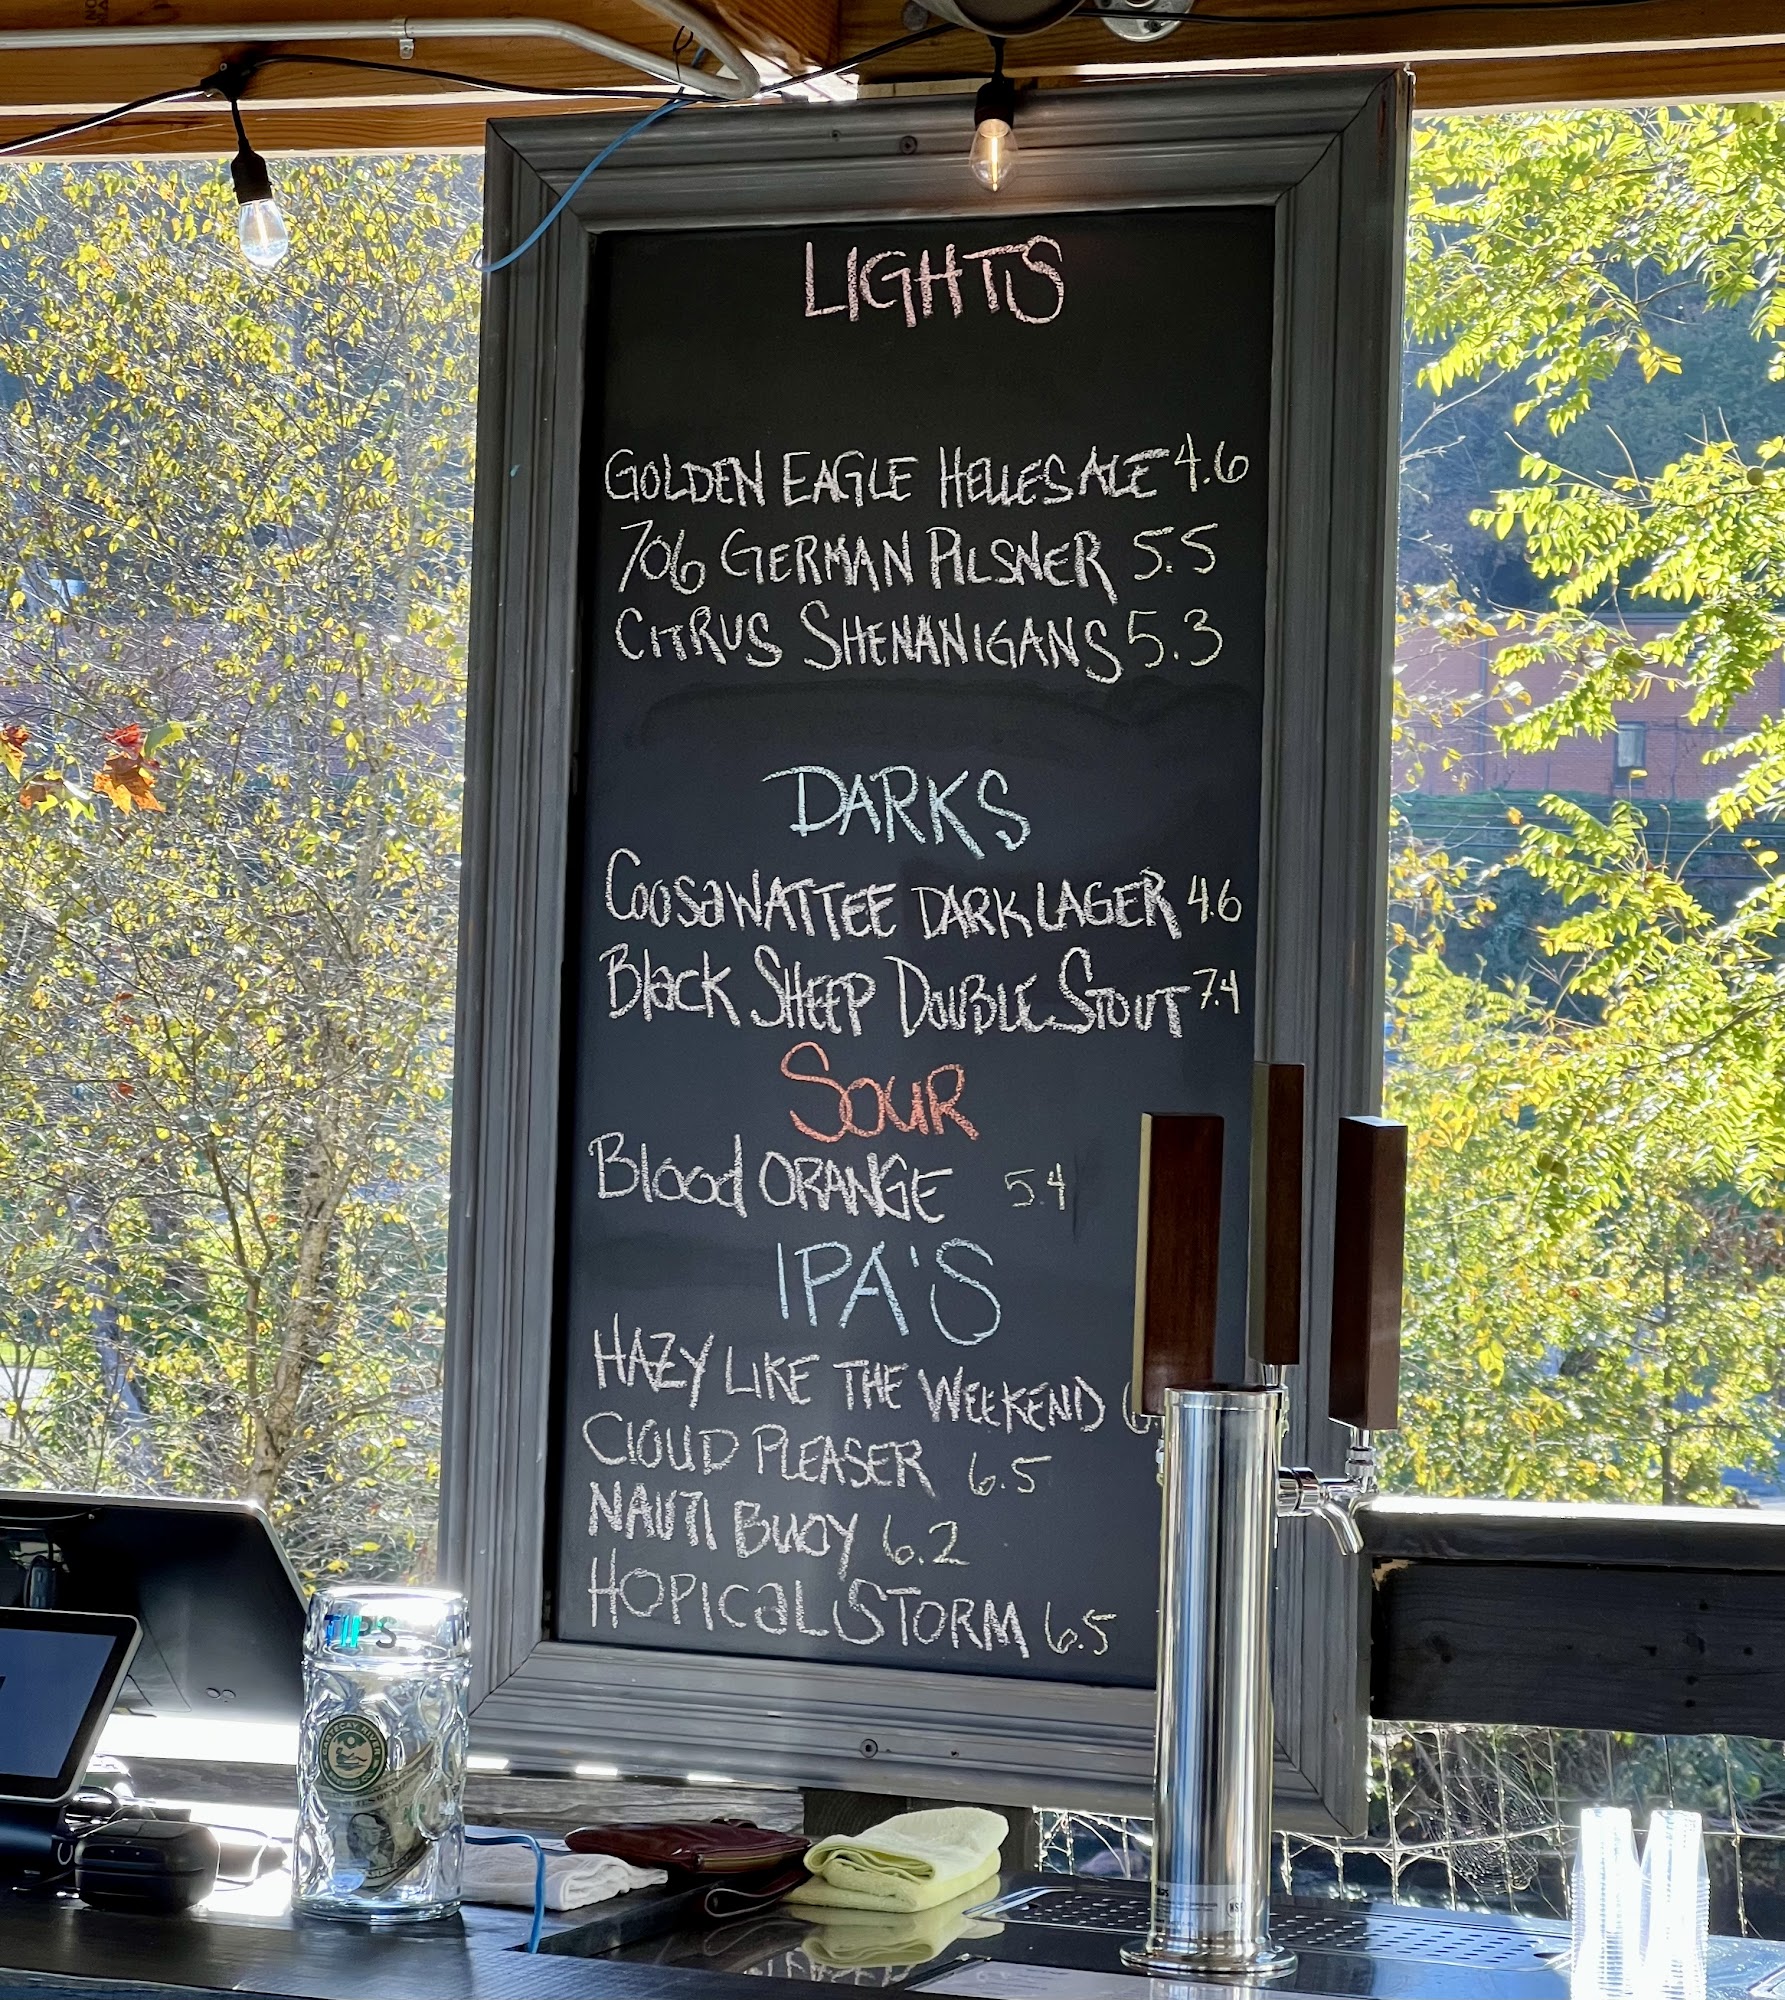 LIGHTS
GOLDEN EAGLE HELLES ALE 4.6
706 GERMAN PILSNER 5.5
CITRUS SHENANIGANS 5.3
DARKS
COOSAWATTEE DARK LAGER 4.6
Black SHEEP DOUBLE STOUT 7.4
SOUR
Blood ORANGE 5.4
IPA'S
HAZY LIKE THE WEEKEND
CLOUD PLEASER 6.5
NAUTI BUOY 6.2
HOPICAL STORM 6.5
TIPS
CARTECAY RIVER